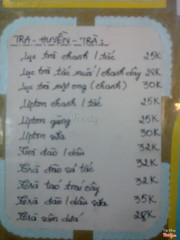 TRA - HUYỀN - TRÂ :
Lục trà chanh / tắc 25K
Lục trà tắc muối / chanh dây 28K
Lục trà mật ong (chanh) 30K
Lipton chanh / tắc 25K
Lipton gừng 25K
Lipton sữa 30K
Trà đào / dâu 32K
Trà dâu xí tắc 32K
Trà trái cây 32K
Trà đào / dâu sữa 35K
Trà sâm dứa 28K